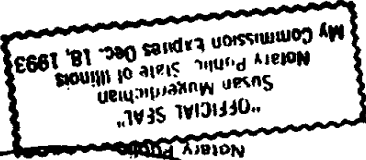 Notary Public
"OFFICIAL SEAL"
Susan Mugerditchian
Notary Public State of Illinois
My Commission Expires Dec. 18, 1993